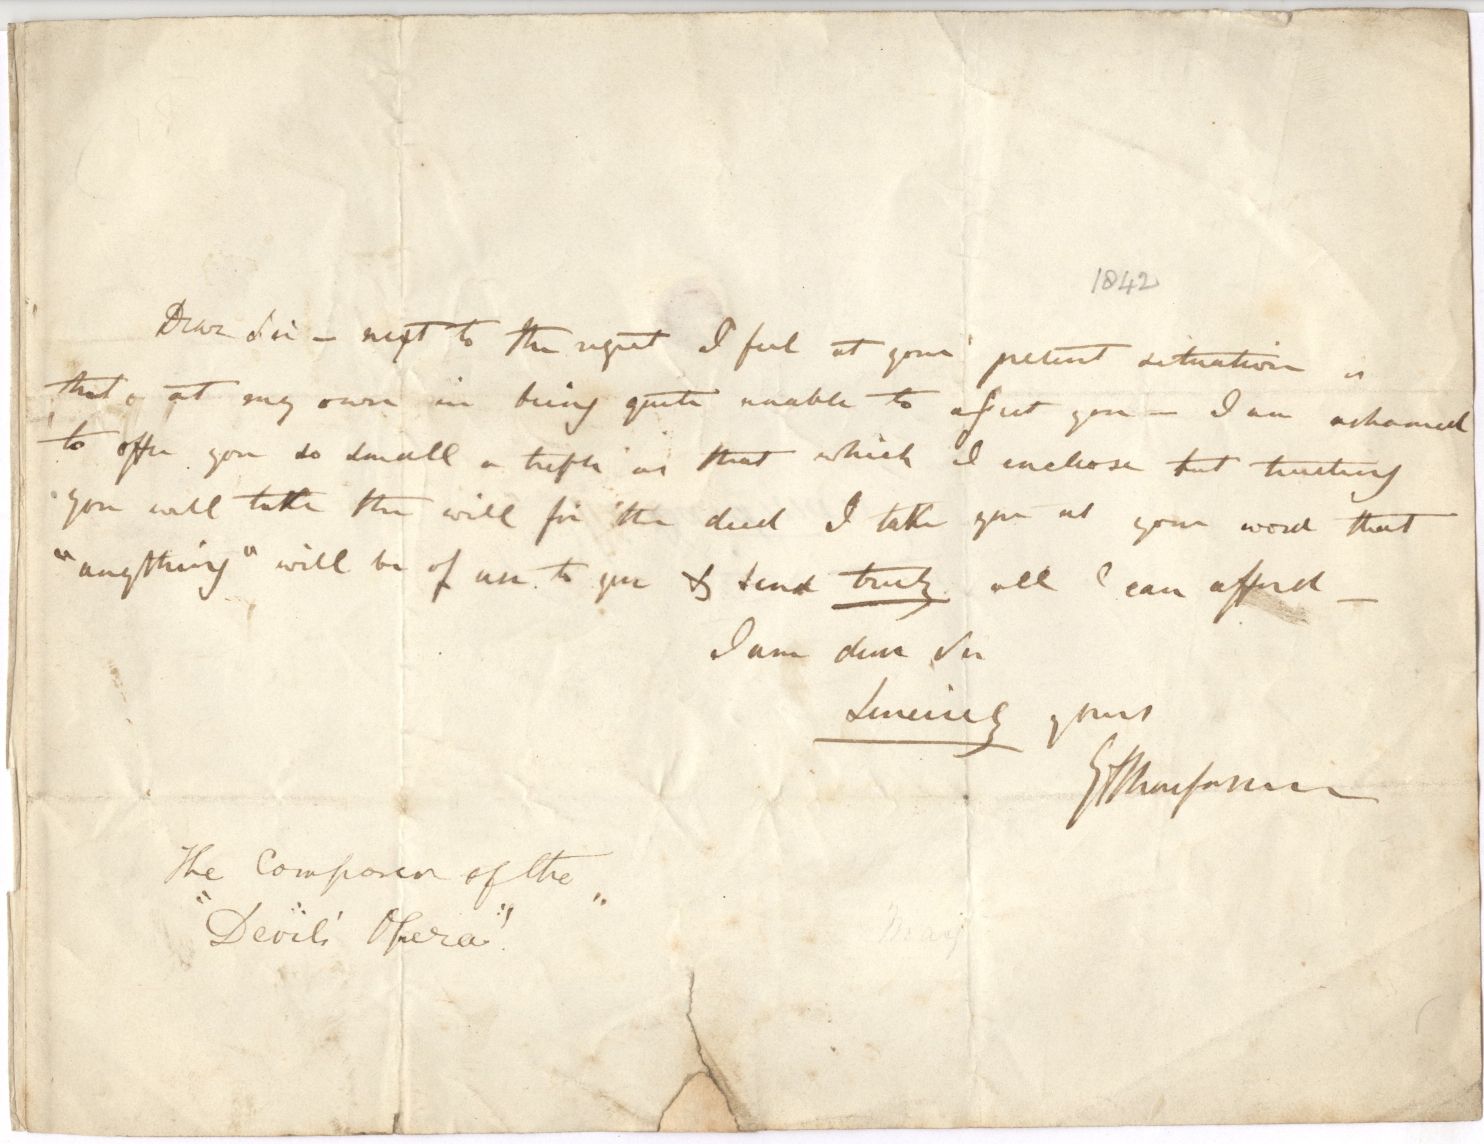 1842
Dear Sir — next to the regret I feel at your present situation is
that at my own in being quite unable to assist you — I am ashamed
to offer you so small a trifle as that which I enclose but trusting
you will take the will for the deed I take you at your word that
"anything" will be of use to you & send truly all I can afford —
I am dear Sir
Sincerely yours
The Composer of the
"Devil's Opera"
May